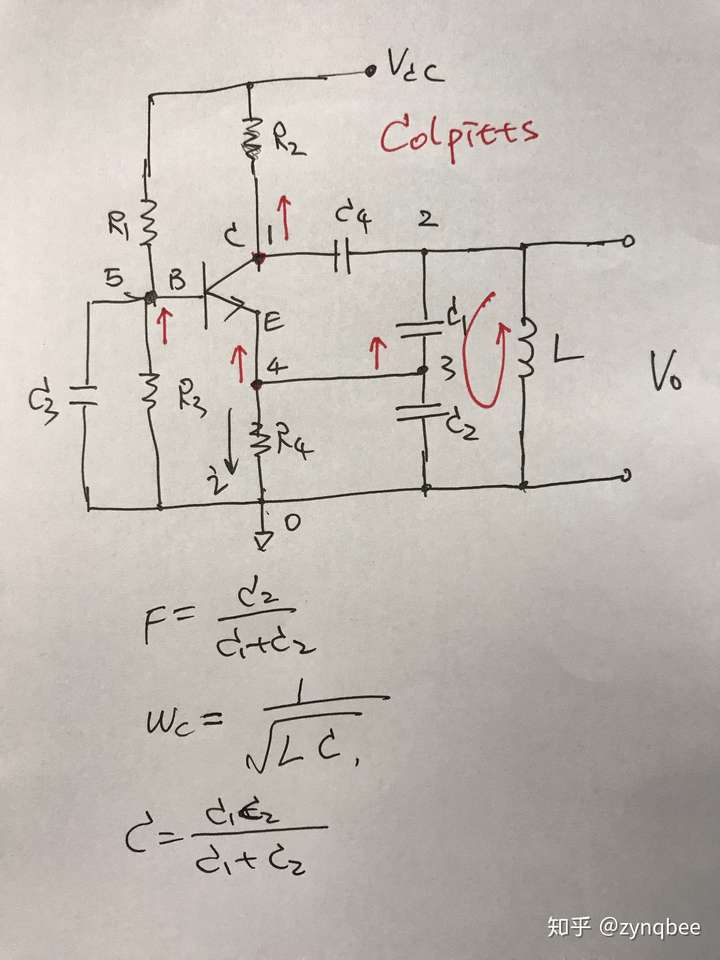 Vcc
Colpitts
R2
R1
C 1
C4
2
5 B
E
C1
L
4
3
C3
R3
R4
C2
Vo
i
0
F = C2 / C1+C2
Wc = 1 / √LC,
C = C1C2 / C1+C2
知乎 @zynqbee